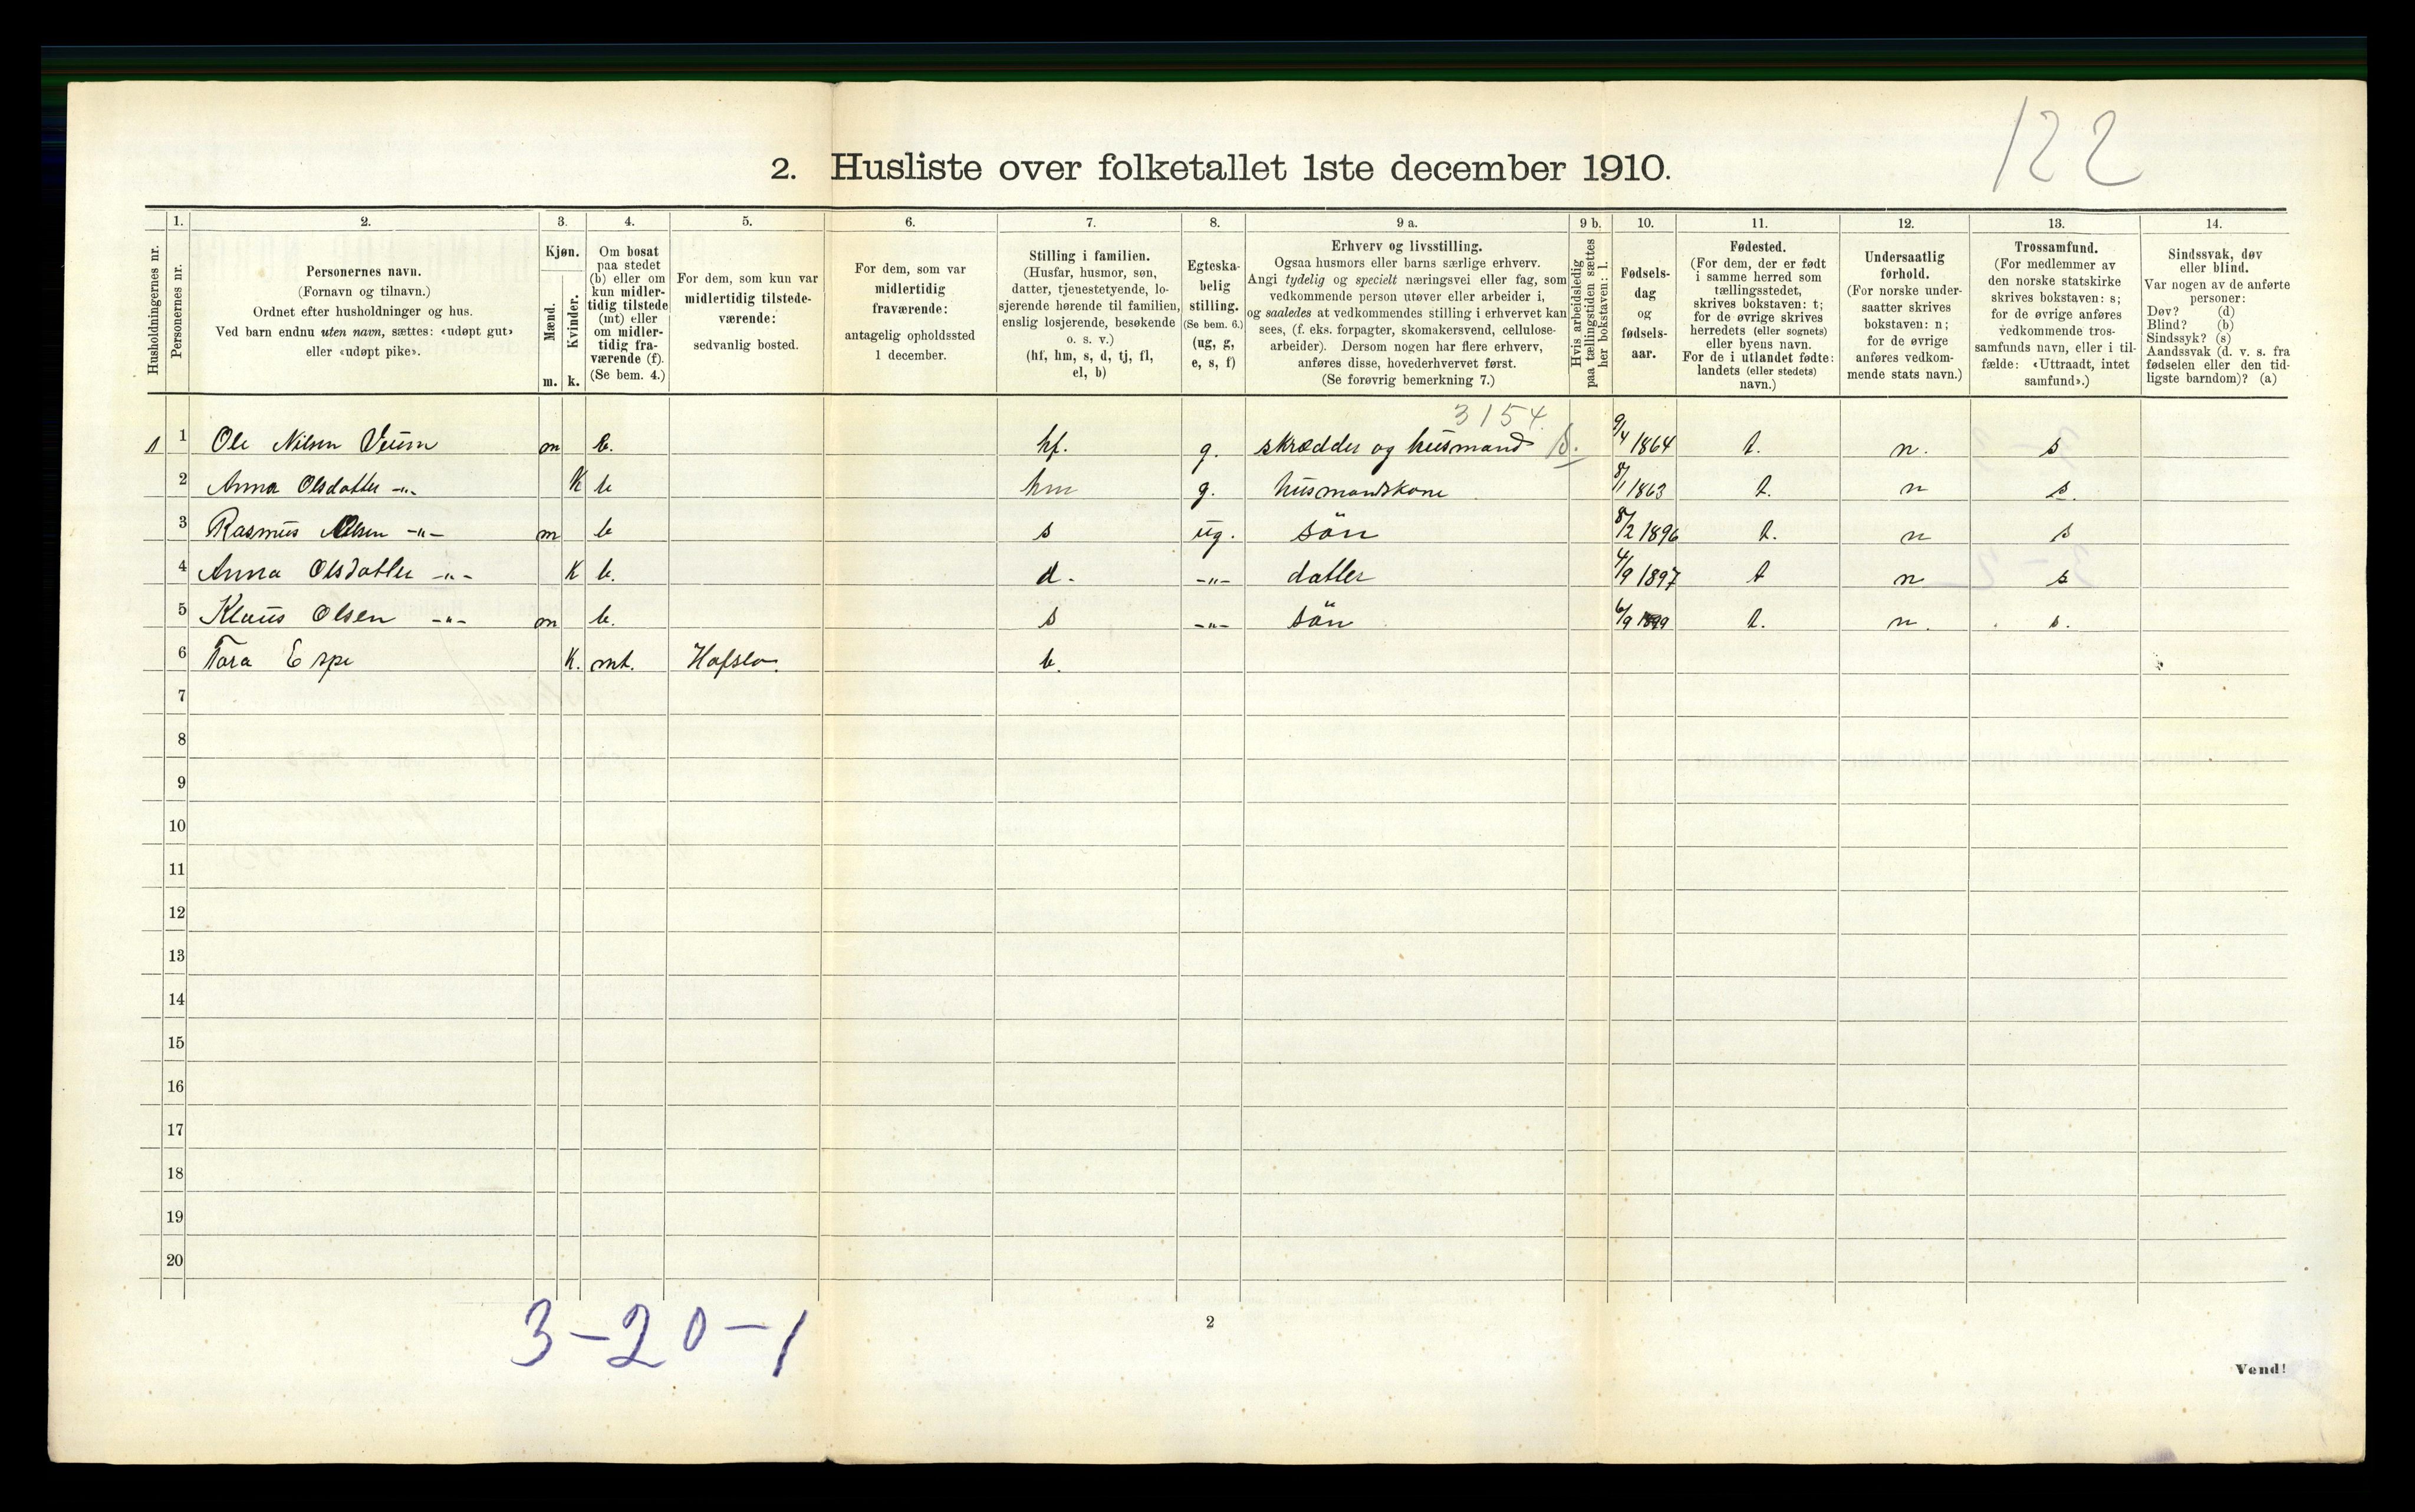 122
2. Husliste over folketallet 1ste december 1910.
Husholdningernes nr.
1. Personernes nr.
2. Personernes navn. (Fornavn og tilnavn.) Ordnet efter husholdninger og hus. Ved barn endnu uten navn, sættes: «udøpt gut» eller «udøpt pike».
3. Kjøn. Mænd. m. Kvinder. k.
4. Om bosat paa stedet (b) eller om kun midlertidig tilstede (mt) eller om midlertidig fraværende (f). (Se bem. 4.)
5. For dem, som kun var midlertidig tilstedeværende: sedvanlig bosted.
6. For dem, som var midlertidig fraværende: antagelig opholdssted 1 december.
7. Stilling i familien. (Husfar, husmor, søn, datter, tjenestetyende, losjerende hørende til familien, enslig losjerende, besøkende o. s. v.) (hf, hm, s, d, tj, fl, el, b)
8. Egteskabelig stilling. (Se bem. 6.) (ug, g, e, s, f)
9 a. Erhverv og livsstilling. Ogsaa husmors eller barns særlige erhverv. Angi tydelig og specielt næringsvei eller fag, som vedkommende person utøver eller arbeider i, og saaledes at vedkommendes stilling i erhvervet kan sees, (f. eks. forpagter, skomakersvend, cellulosearbeider). Dersom nogen har flere erhverv, anføres disse, hovederhvervet først. (Se forøvrig bemerkning 7.)
9 b. Hvis arbeidsledig paa tællingstiden sættes her bokstaven: l.
10. Fødselsdag og fødselsaar.
11. Fødested. (For dem, der er født i samme herred som tællingsstedet, skrives bokstaven: t; for de øvrige skrives herredets (eller sognets) eller byens navn. For de i utlandet fødte: landets (eller stedets) navn.)
12. Undersaatlig forhold. (For norske undersaatter skrives bokstaven: n; for de øvrige anføres vedkommende stats navn.)
13. Trossamfund. (For medlemmer av den norske statskirke skrives bokstaven: s; for de øvrige anføres vedkommende trossamfunds navn, eller i tilfælde: «Uttraadt, intet samfund».)
14. Sindssvak, døv eller blind. Var nogen av de anførte personer: Døv? (d) Blind? (b) Sindssyk? (s) Aandssvak (d. v. s. fra fødselen eller den tidligste barndom)? (a)
3154.
1 1 Ole Nilsen Veum m b. hf. g. skrædder og husmand 9/4 1864 t. n. s
2 Anna Olsdatter -"- K b hm g. husmandskone 8/1 1863 t. n s.
3 Rasmus Olsen -"- m b s ug. sön 8/2 1896 t. n s
4 Anna Olsdatter -"- K b. d. -"- datter 4/9 1897 t n s
5 Klaus Olsen -"- m b. s -"- sön 6/9 1899 t. n. s.
6 Tora Espe K. mt. Hafslo. b.
7
8
9
10
11
12
13
14
15
16
17
18
19
20
3-20-1
2
Vend!